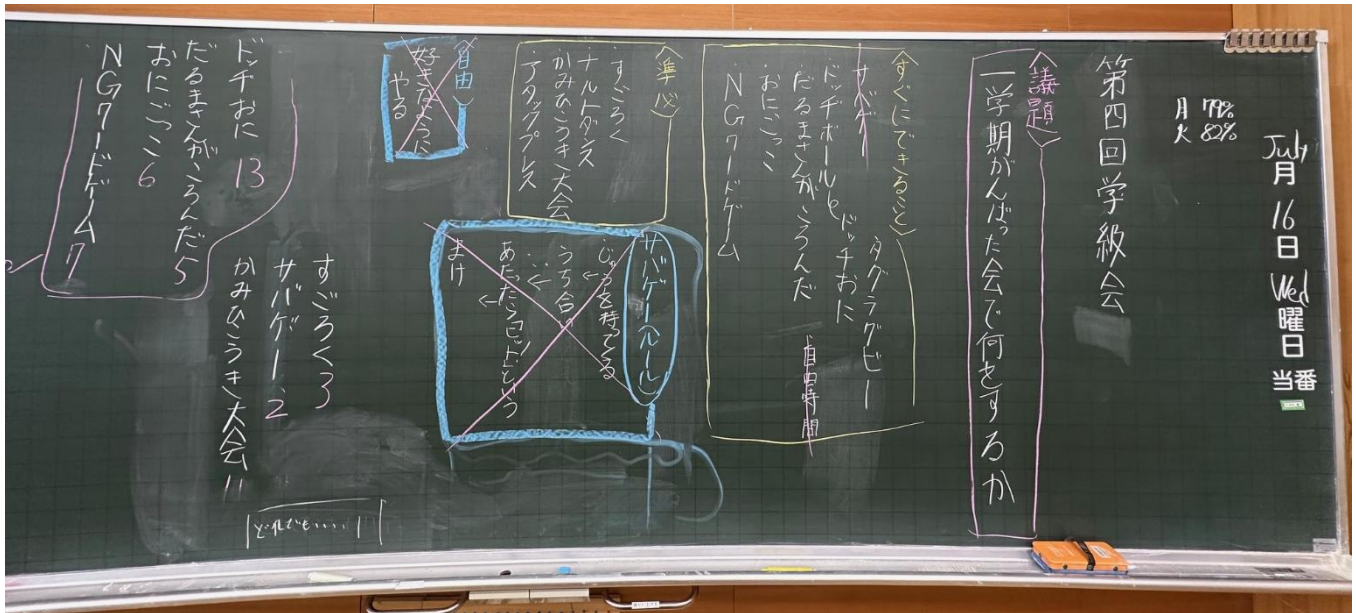 July
月 16日 Wed曜日 当番
月 79%
火 82%
第四回学級会
〈議題〉
一学期がんばった会で何をするか
〈すぐにできること〉
・タグラグビー
・サバゲー
・ドッチボール
・ドッチおに
・だるまさんがころんだ
自由時間
・おにごっこ
・NGワードゲーム
〈準心〉
・すごろく
・ナルトダンス
・かみひこうき大会
・アタックプレス
〈自由〉
好きなように
やる
サバゲー(ルール)
じゅうを持ってる
←
うち合い
←
あたったらヒットという
←
まけ
ドッチおに 13
だるまさんがころんだ 5
おにごっこ 6
NGワードゲーム 7
すごろく 3
サバゲー、2
かみひこうき大会 11
どれでも・・・・・ 1